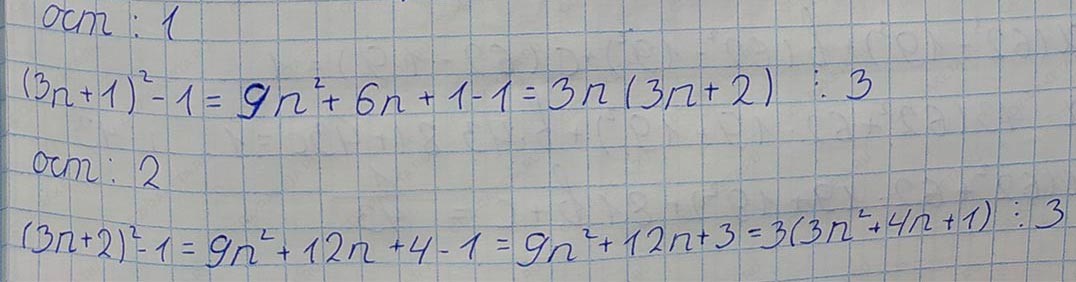 ост : 1
(3n+1)² - 1 = 9n² + 6n + 1 - 1 = 3n (3n + 2) ⋮ 3
ост : 2
(3n+2)² - 1 = 9n² + 12n + 4 - 1 = 9n² + 12n + 3 = 3(3n² + 4n + 1) ⋮ 3